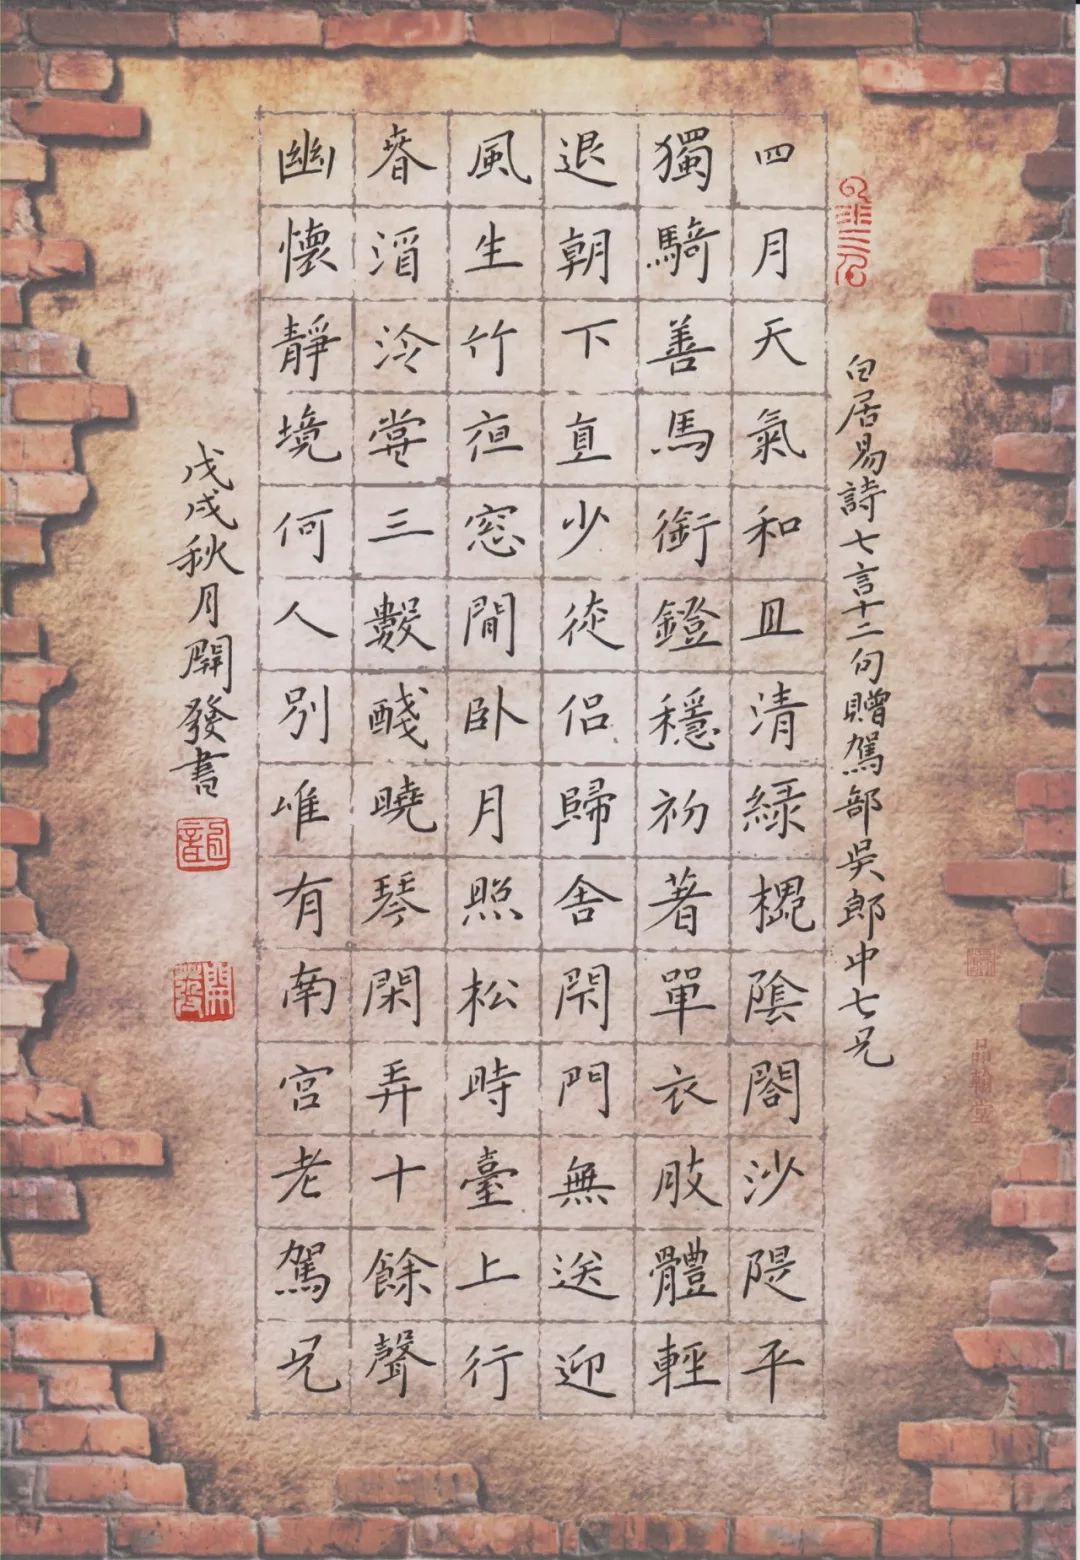 白居易詩七言十二句贈駕部吳郎中七兄
四月天氣和且清綠槐陰閤沙隄平
獨騎善馬銜鐙穩初著單衣肢體輕
退朝下直少徒侶歸舍閉門無送迎
風生竹夜窓間臥月照松時臺上行
春酒冷嘗三數醆曉琴閑弄十餘聲
幽懷靜境何人別唯有南宮老駕兄
戊戌秋月開發書
開發